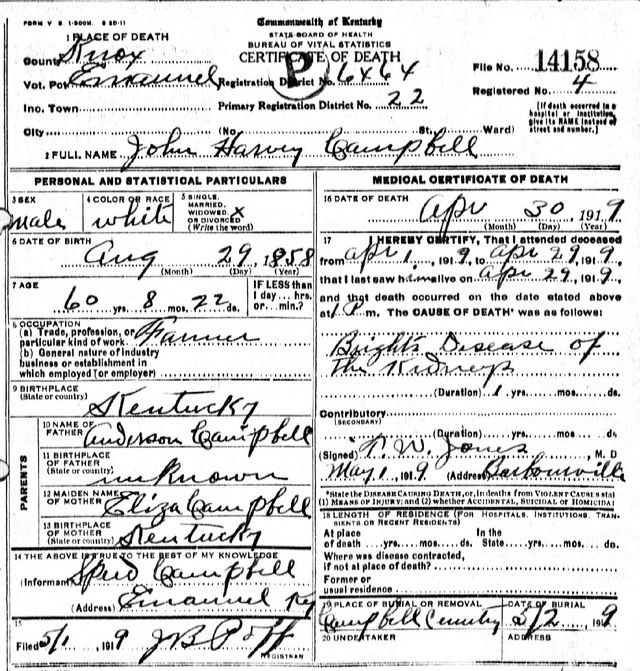 FORM V. S. 1-500M. 6 20-11
Commonwealth of Kentucky
STATE BOARD OF HEALTH
BUREAU OF VITAL STATISTICS
CERTIFICATE OF DEATH
1 PLACE OF DEATH
County Knox
Vot. Pct. Emanuel
Inc. Town
City (No. St. Ward)
Registration District No. 6464
Primary Registration District No. 22
File No. 14158
Registered No. 4
[If death occurred in a hospital or institution, give its NAME instead of street and number.]
2 FULL NAME John Harvey Campbell
PERSONAL AND STATISTICAL PARTICULARS
3 SEX
male
4 COLOR OR RACE
white
5 SINGLE, MARRIED, WIDOWED, X OR DIVORCED
(Write the word)
6 DATE OF BIRTH
Aug 29, 1858
(Month) (Day) (Year)
7 AGE
60 yrs. 8 mos. 22 ds.
IF LESS than 1 day... hrs. or... min.?
8 OCCUPATION
(a) Trade, profession, or particular kind of work Farmer
(b) General nature of industry
business or establishment in
which employed (or employer)
9 BIRTHPLACE
(State or country) Kentucky
PARENTS
10 NAME OF FATHER Anderson Campbell
11 BIRTHPLACE OF FATHER
(State or country) unknown
12 MAIDEN NAME OF MOTHER Eliza Campbell
13 BIRTHPLACE OF MOTHER
(State or country) Kentucky
14 THE ABOVE IS TRUE TO THE BEST OF MY KNOWLEDGE
(Informant) Speed Campbell
(Address) Emanuel Ky
15
Filed 5/1, 1919 J B Poff
REGISTRAR
MEDICAL CERTIFICATE OF DEATH
16 DATE OF DEATH
Apr 30, 1919
(Month) (Day) (Year)
17 I HEREBY CERTIFY, That I attended deceased
from Apr 1, 1919, to Apr 29, 1919,
that I last saw him alive on Apr 29, 1919,
and that death occurred on the date stated above
at 1 P m. The CAUSE OF DEATH* was as follows:
Brights Disease of
the Kidneys
(Duration) 1 yrs. mos. ds.
Contributory
(SECONDARY)
(Duration) yrs. mos. ds.
(Signed) T. W. Jones, M. D
May 1, 1919 (Address) Barbourville
*State the DISEASE CAUSING DEATH, or, in deaths from VIOLENT CAUSES stat
(1) MEANS OF INJURY; and (2) whether ACCIDENTAL, SUICIDAL or HOMICIDAL
18 LENGTH OF RESIDENCE (FOR HOSPITALS, INSTITUTIONS, TRANSIENTS OR RECENT RESIDENTS)
At place of death yrs. mos. ds. In the State yrs. mos. ds.
Where was disease contracted,
if not at place of death?
Former or
usual residence
19 PLACE OF BURIAL OR REMOVAL
Campbell Cemetery
DATE OF BURIAL
5/2, 1919
20 UNDERTAKER
ADDRESS